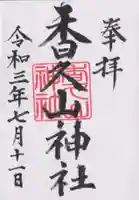 奉拝
香久山神社
令和三年七月十一日